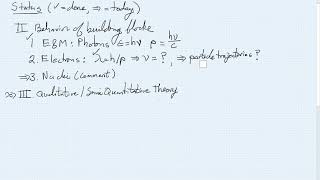 Status (✓=done, ⇒=today)
II Behavior of building blocks
✓ 1. E&M: Photons ε=hν p = hν/c
2. Electrons: ✓λ=h/p ⇒ν=? , ⇒particle trajectories?
⇒3. Nuclei (comment)
⇒ III Qualitative/SemiQuantitative Theory